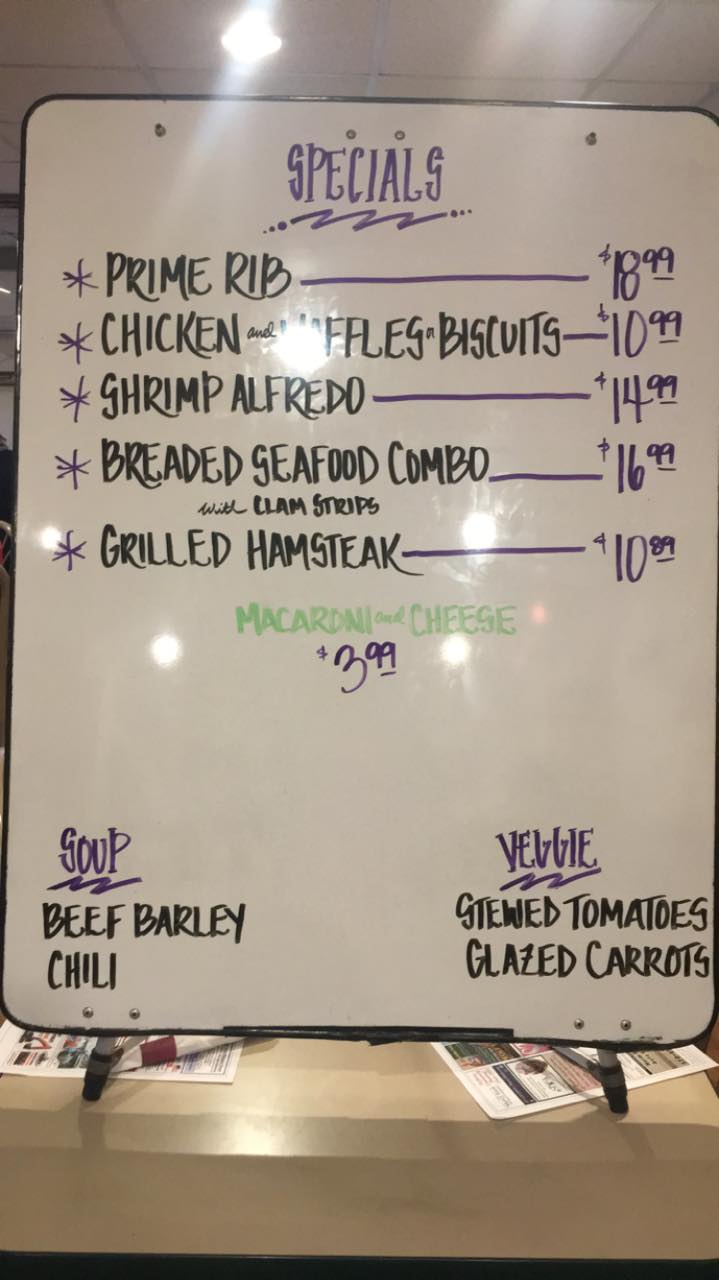 SPECIALS
* PRIME RIB $18.99
* CHICKEN and WAFFLES or BISCUITS $10.99
* SHRIMP ALFREDO $14.99
* BREADED SEAFOOD COMBO $16.99
with CLAM STRIPS
* GRILLED HAMSTEAK $10.89
MACARONI and CHEESE
$3.99
SOUP
BEEF BARLEY
CHILI
VEGGIE
STEWED TOMATOES
GLAZED CARROTS